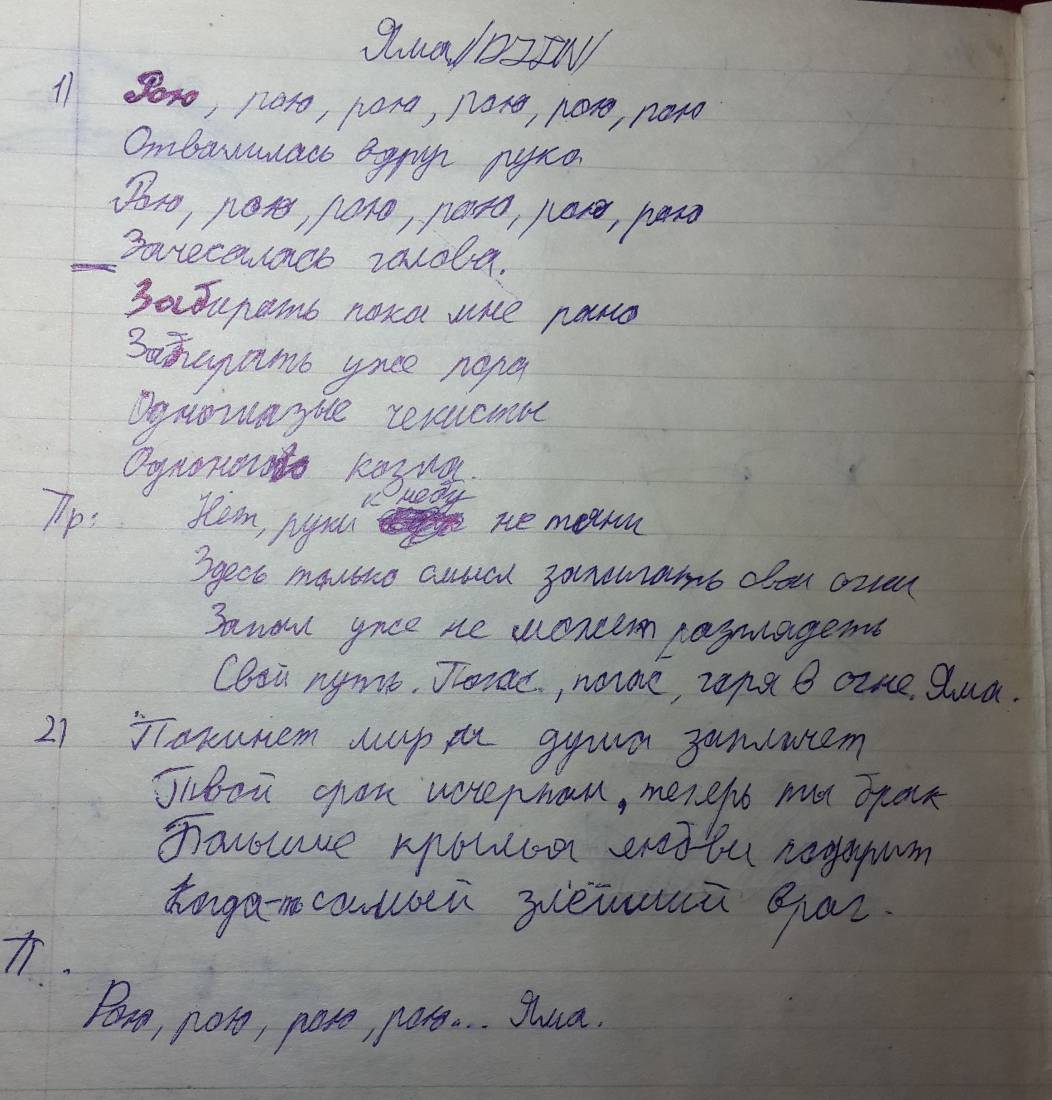 Яма //DJIN//
1) Рою, рою, рою, рою, рою, рою
Отвалилась вдруг рука
Рою, рою, рою, рою, рою, рою
Зачесалась голова.
Забирать пока мне рано
Забирать уже пора
Одноглазые чекисты
Одноного козла.
Пр: Нет, руки к небу не тяни
Здесь только смысл запилать свои огни
Запал уже не может разглядеть
Свой путь. Погас, погас, горя в огне. Яма.
2) Покинет мир и душа заплачет
Твой срок исчерпан, теперь ты брак
Большие крылья любви подарит
Когда-то самый злейший враг.
П.
Рою, рою, рою, рою... Яма.